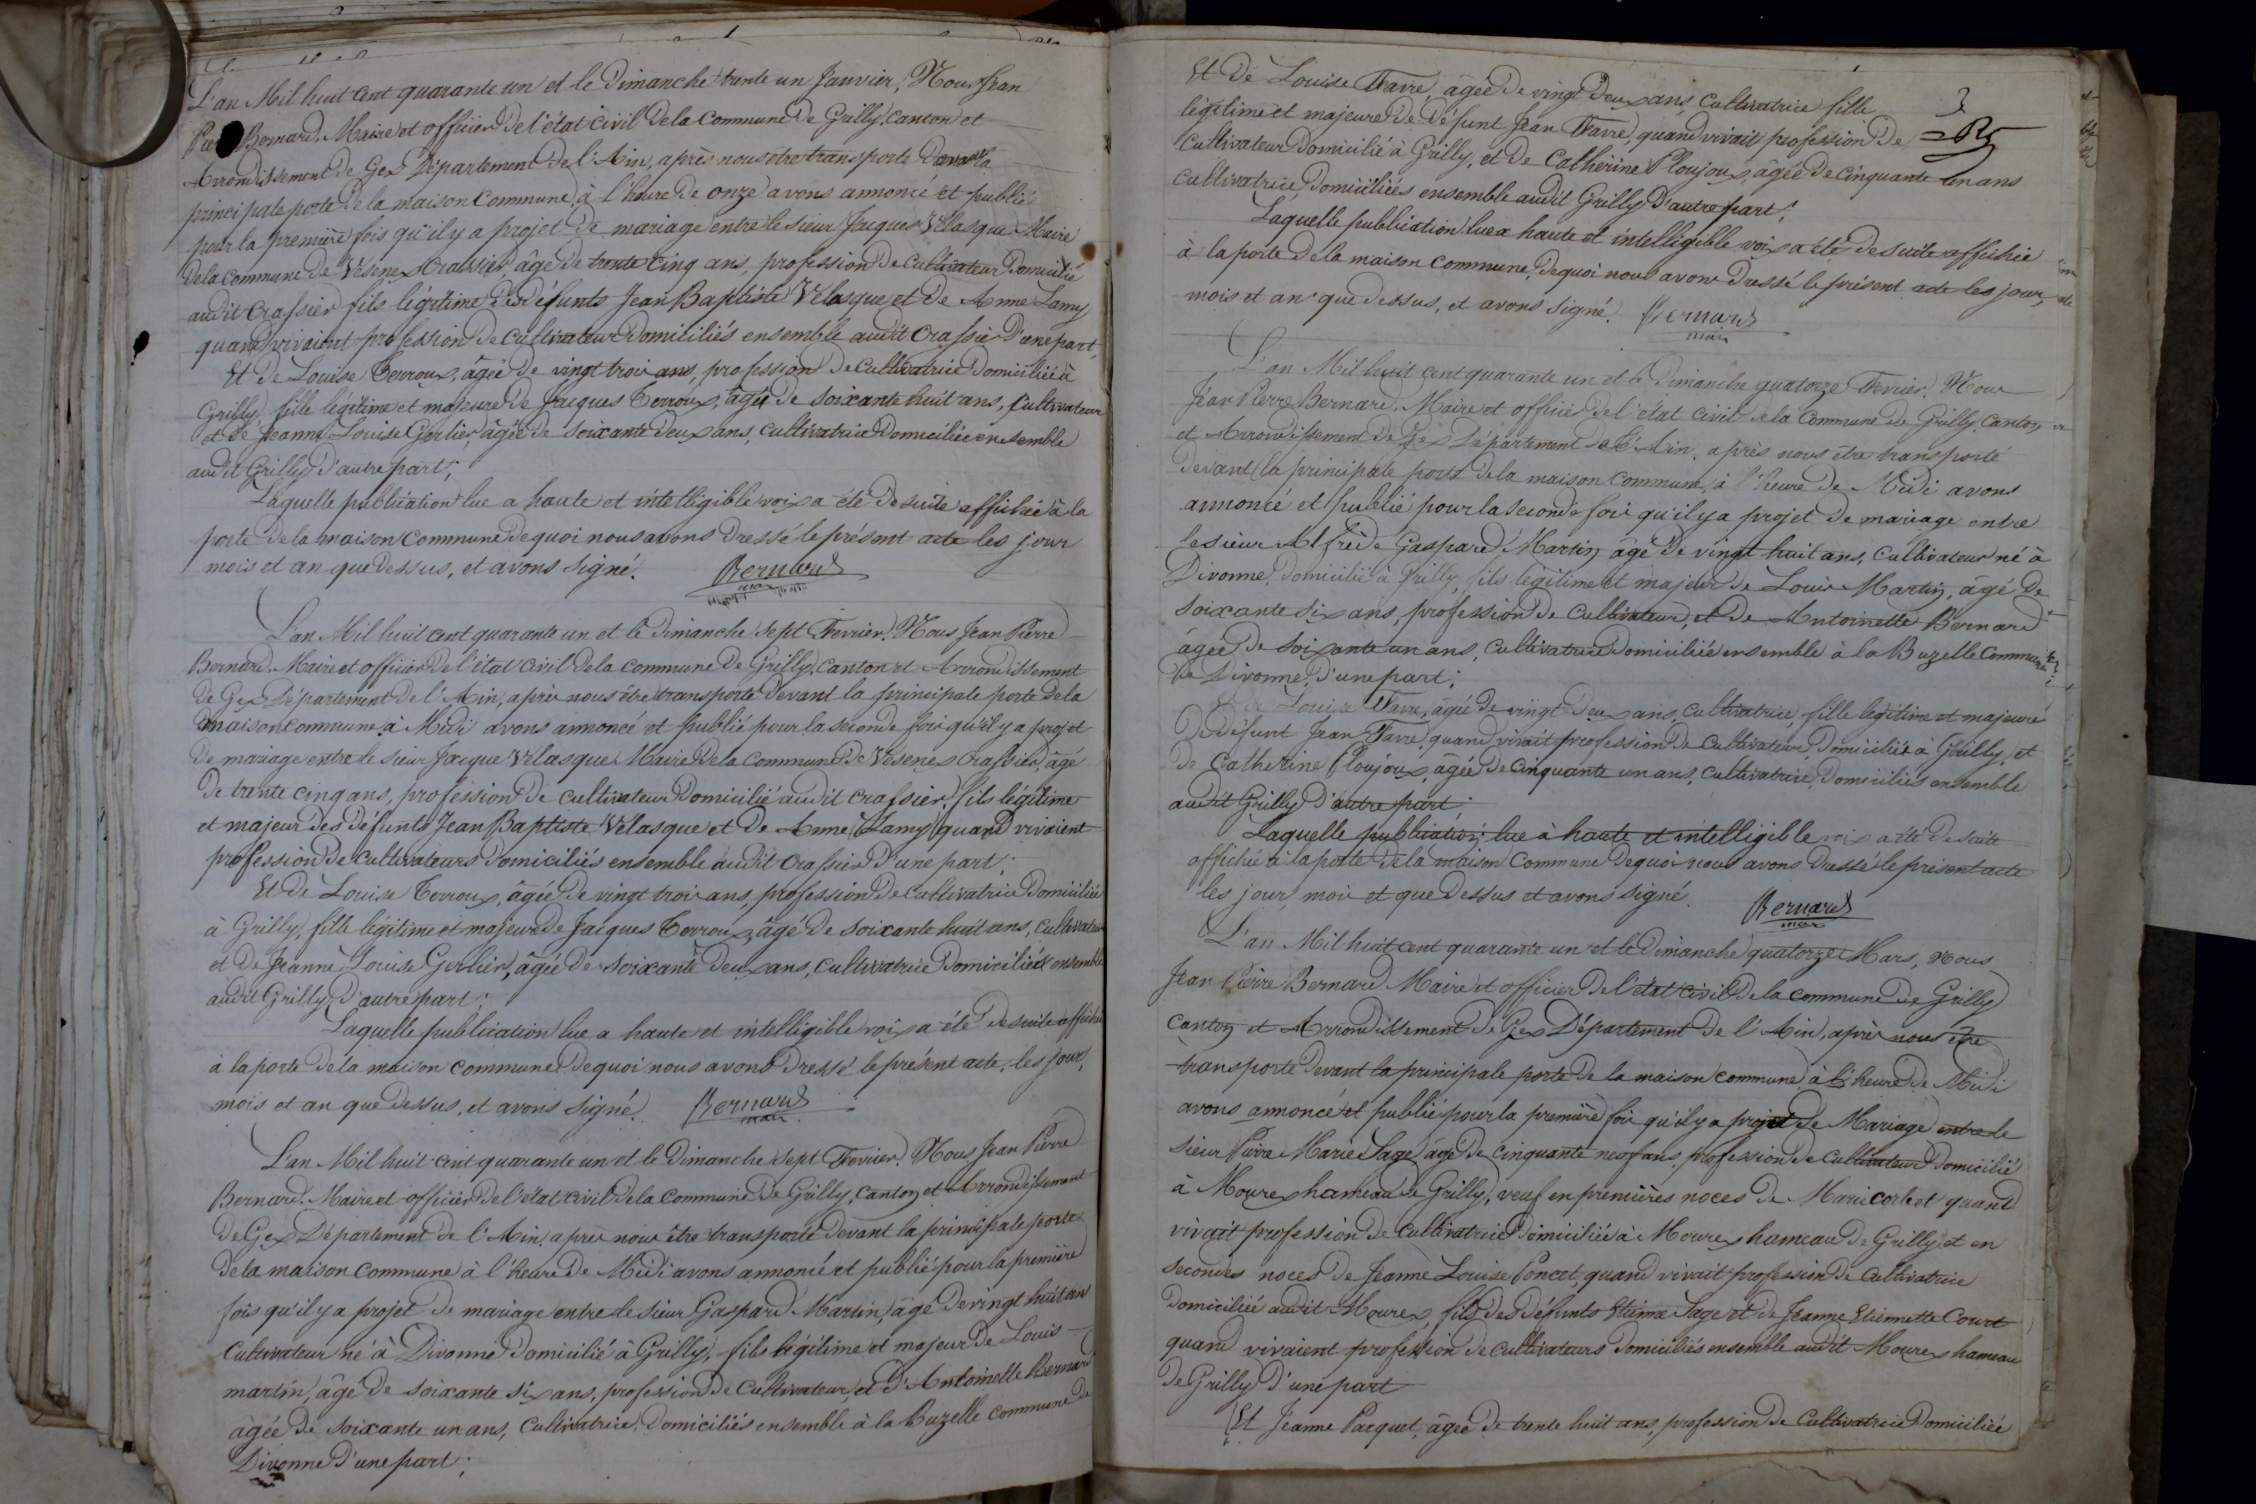 L'an Mil huit cent quarante un et le Dimanche trente un Janvier, Nous Jean
Pierre Bernard, Maire et officier de l'état civil de la Commune de Grilly, canton et
Arrondissement de Gex Département de l'Ain, après nous être transporté devant la
principale porte de la maison commune, à l'heure de onze avons annoncé et publié
pour la première fois qu'il y a projet de mariage entre le sieur Jacques Vélasque Maire
de la commune de Vésenex Crassier, âgé de trente cinq ans, profession de cultivateur domicilié
audit Crassier fils légitime des défunts Jean Baptiste Vélasque et de Anne Lamy
quand vivaient profession de cultivateur domiciliés ensemble audit Crassier d'une part,
Et de Louise Terroux, âgée de vingt trois ans, profession de cultivatrice domiciliée à
Grilly, fille légitime et majeure de Jacques Terroux, âgé de soixante huit ans, cultivateur
et de Jeanne Louise Gerlier, âgée de soixante deux ans, cultivatrice domiciliée ensemble
audit Grilly d'autre part;
Laquelle publication lue a haute et intelligible voix a été de suite affichée à la
porte de la maison commune de quoi nous avons dressé le présent acte les jour
mois et an que dessus, et avons signé. Bernard
maire
L'an Mil huit cent quarante un et le Dimanche sept Fevrier, Nous Jean Pierre
Bernard, Maire et officier de l'état civil de la commune de Grilly, canton et Arrondissement
de Gex Département de l'Ain, après nous être transporté devant la principale porte de la
maison commune à Midi avons annoncé et publié pour la seconde fois qu'il y a projet
de mariage entre le sieur Jacque Vélasque Maire de la commune de Vésenex Crassier, âgé
de trente cinq ans, profession de cultivateur domicilié audit Crassier, fils légitime
et majeur des défunts Jean Baptiste Vélasque et de Anne Lamy quand vivaient
profession de cultivateurs domiciliés ensemble audit Crassier d'une part;
Et de Louise Terroux, âgée de vingt trois ans, profession de cultivatrice domiciliée
à Grilly, fille légitime et majeure de Jacques Terroux, âgé de soixante huit ans, cultivateur
et de Jeanne Louise Gerlier, âgée de soixante deux ans, cultivatrice domiciliés ensemble
audit Grilly d'autre part;
Laquelle publication lue a haute et intelligible voix a été de suite affichée
à la porte de la maison commune de quoi nous avons dressé le présent acte, les jour,
mois et an que dessus, et avons signé. Bernard
maire
L'an Mil huit cent quarante un et le Dimanche sept Fevrier, Nous Jean Pierre
Bernard, Maire et officier de l'état civil de la Commune de Grilly, Canton et Arrondissement
de Gex Département de l'Ain, après nous être transporté devant la principale porte
de la maison commune à l'heure de Midi avons annoncé et publié pour la première
fois qu'il y a projet de mariage entre le sieur Gaspard Martin, âgé de vingt huit ans
Cultivateur né à Divonne domicilié à Grilly, fils légitime et majeur de Louis
martin, âgé de soixante six ans, profession de Cultivateur, et d'Antoinette Bernard
âgée de soixante un ans, cultivatrice, domiciliés ensemble à la Buzelle commune de
Divonne d'une part;
3
Et de Louise Favre, âgée de vingt deux ans, cultivatrice fille
légitime et majeure de défunt Jean Favre, quand vivait profession de
cultivateur domicilié à Grilly, et de Catherine Ploujoux, âgée de cinquante un ans
cultivatrice, domiciliés ensemble audit Grilly d'autre part;
Laquelle publication lue a haute et intelligible voix a été de suite affichée
à la porte de la maison commune, de quoi nous avons dressé le présent acte les jour,
mois et an que dessus, et avons signé. Bernard
maire
L'an Mil huit cent quarante un et le Dimanche quatorze Fevrier, Nous
Jean Pierre Bernard, Maire et officier de l'état civil de la Commune de Grilly, Canton
et Arrondissement de Gex Département de l'Ain, après nous être transporté
devant la principale porte de la maison commune, à l'heure de Midi avons
annoncé et publié pour la seconde fois qu'il y a projet de mariage entre
le sieur Alfrède Gaspard Martin âgé de vingt huit ans, cultivateur né à
Divonne, domicilié à Grilly, fils légitime et majeur de Louis Martin, âgé de
soixante six ans, profession de cultivateur, et de Antoinette Bernard
âgée de soixante un ans, cultivatrice domiciliée ensemble à la Buzelle commune
de Divonne, d'une part;
Et de Louise Favre, âgée de vingt deux ans, cultivatrice, fille légitime et majeure
de défunt Jean Favre, quand vivait profession de cultivateur, domicilié à Grilly, et
de Catherine Ploujoux, âgée de cinquante un ans, cultivatrice, domiciliés ensemble
audit Grilly d'autre part;
Laquelle publication, lue à haute et intelligible voix a été de suite
affichée à la porte de la maison commune de quoi nous avons dressé le présent acte
les jour, mois et que dessus et avons signé. Bernard
maire
L'an Mil huit cent quarante un et le Dimanche quatorze Mars, Nous
Jean Pierre Bernard Maire et officier de l'état civil de la commune de Grilly
Canton et Arrondissement de Gex Département de l'Ain, après nous être
transporté devant la principale porte de la maison commune, à l'heure de Midi
avons annoncé et publié pour la première fois qu'il y a projet de Mariage entre le
sieur Pierre Marie Sage âgé de cinquante neuf ans, profession de cultivateur domicilié
à Mourex hameau de Grilly, veuf en premières noces de Marie corbet quand
vivait profession de cultivatrice domiciliée à Mourex hameau de Grilly et en
secondes noces de Jeanne Louise Poncet, quand vivait profession de cultivatrice
domiciliée audit Mourex, fils des défunts Etienne Sage et de Jeanne Etiennette Court
quand vivaient profession de cultivateurs domiciliés ensemble audit Mourex hameau
de Grilly d'une part
Et Jeanne Pacquet, âgée de trente huit ans, profession de Cultivatrice domiciliée